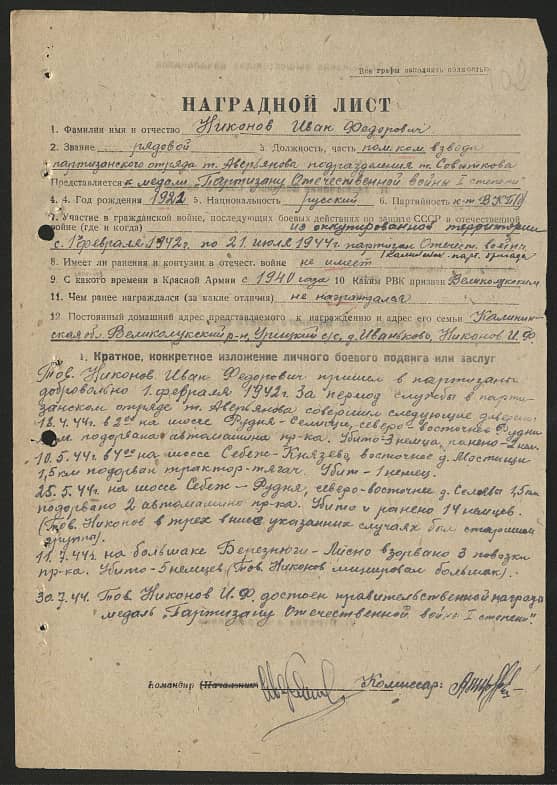 Все графы заполнять полностью
НАГРАДНОЙ ЛИСТ
1. Фамилия имя и отчество Никонов Иван Федорович
2. Звание рядовой 3. Должность, часть пом.ком.взвода
партизанского отряда т. Аверьянова подразделения т.
Представляется к медали „Партизану Отечественной войны I степени"
4. 4. Год рождения 1922 5. Национальность русский 6. Партийность к-т ВКП(б)
7. Участие в гражданской войне, последующих боевых действиях по защите СССР и отечественной
войне (где и когда) на оккупированной территории
с 1 февраля 1942г. по 21 июля 1944г. партизан Отечест. войны
Калининск. парт. бригада
8. Имеет ли ранения и контузии в отечест. войне не имеет
9. С какого времени в Красной Армии с 1940 года 10 Каким РВК призван Великолукским
11. Чем ранее награждался (за какие отличия) не награждался
12. Постоянный домашний адрес представляемого к награждению и адрес его семьи Калинин-
ская обл. Великолукский р-н, Урицкий с/с, д. Иваньково, Никонов И.Ф.
1. Краткое, конкретное изложение личного боевого подвига или заслуг
Тов. Никонов Иван Федорович пришел в партизаны
добровольно 1. февраля 1942г. За период службы в парти-
занском отряде т. Аверьянова совершил следующие диверсии:
18.4.44г. в 2 00 на шоссе Рудня- северо-восточнее Рудни
подорвана автомашина пр-ка. Убито-3 немца, ранено-2 нем.
10.5.44г. в 4 00 на шоссе Себеж-Князево, восточнее д. Мостищи
1,5 км подорван трактор-тягач. Убит-1 немец.
25.5.44г. на шоссе Себеж-Рудня, северо-восточнее д. 1,5 км
подорвано 2 автомашины пр-ка. Убито и ранено 14 немцев.
(Тов. Никонов в трех выше указанных случаях был старшим
группы).
11.7.44г. на большаке Березнюги-Лисно взорвано 3 повозки
пр-ка. Убито-5 немцев (Тов. Никонов минировал большак).
30.7.44. Тов. Никонов И.Ф. достоен правительственной награды
медаль „Партизану Отечественной войны I степени".
Командир (Начальник) Комиссар: